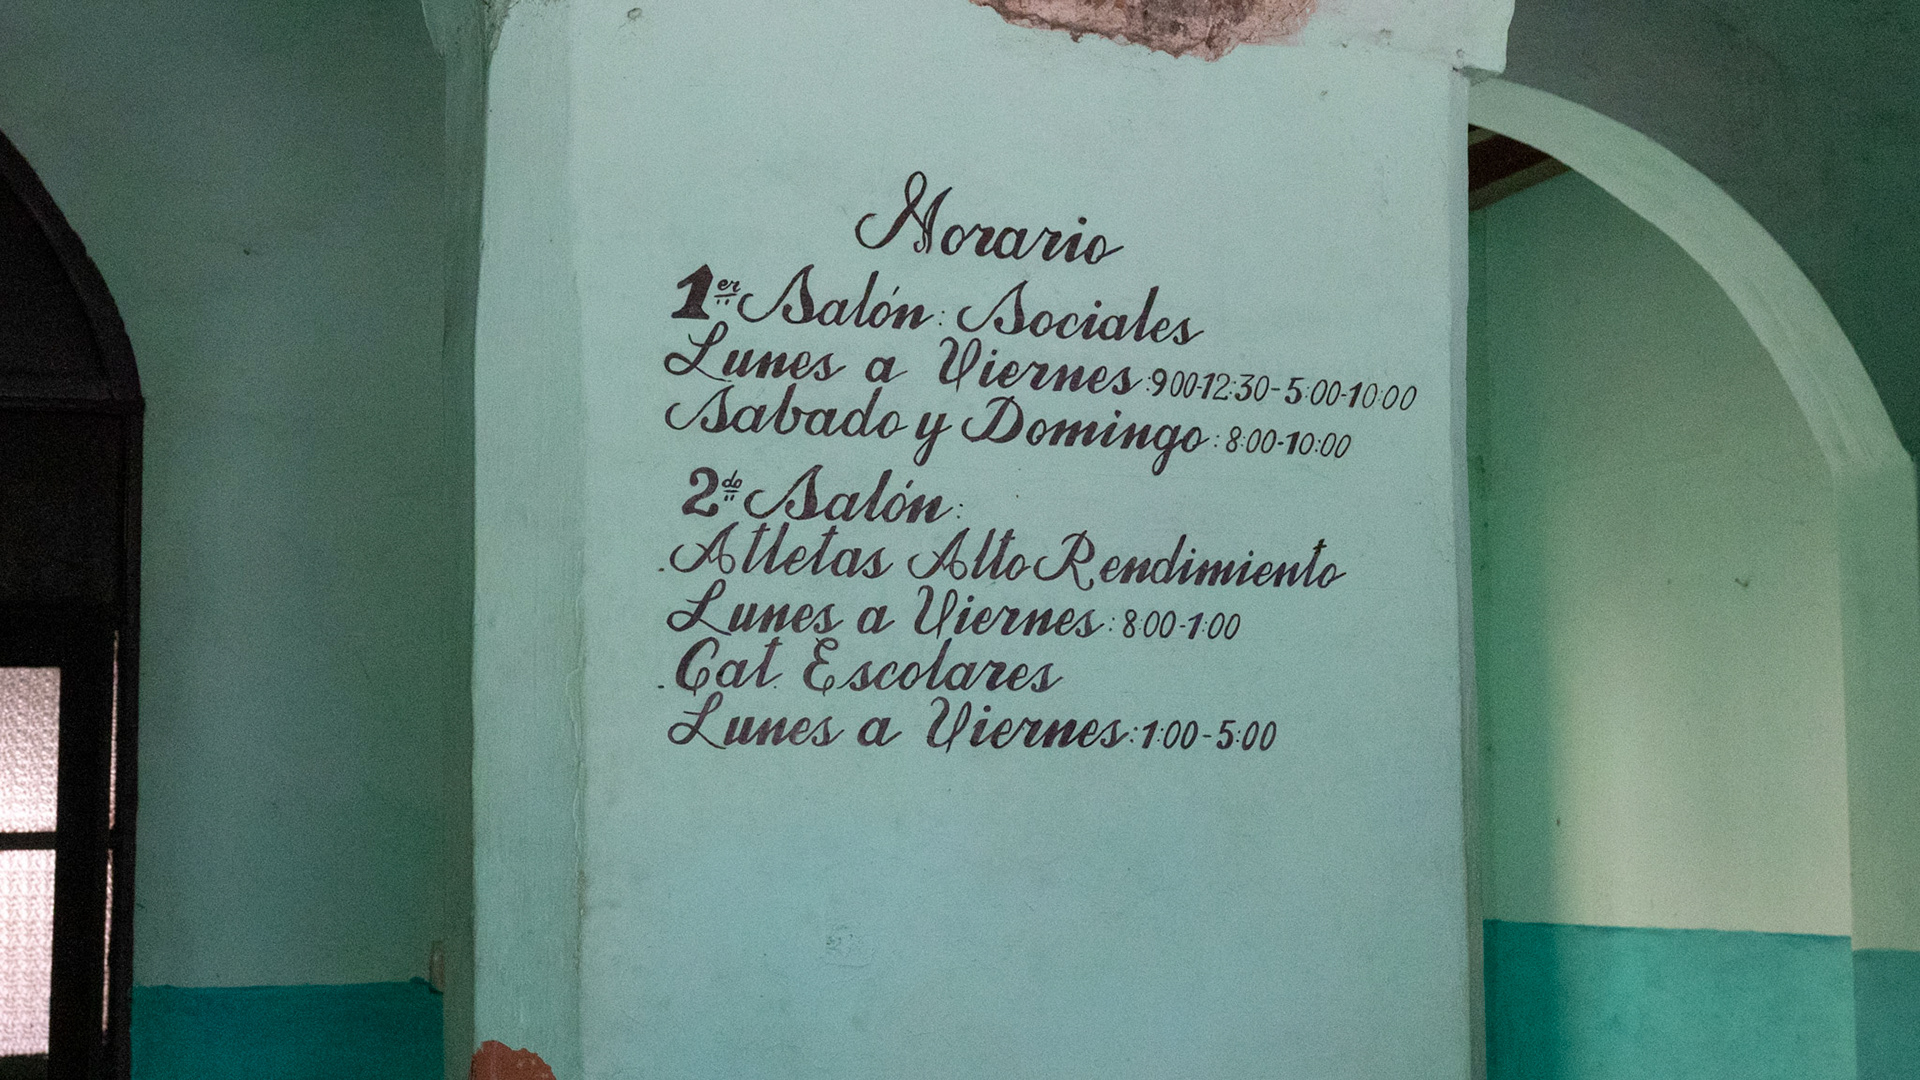 Horario
1er Salón: Sociales
Lunes a Viernes: 9:00-12:30-5:00-10:00
Sabado y Domingo: 8:00-10:00
2do Salón:
. Atletas Alto Rendimiento
Lunes a Viernes: 8:00-1:00
. Cat. Escolares
Lunes a Viernes: 1:00-5:00